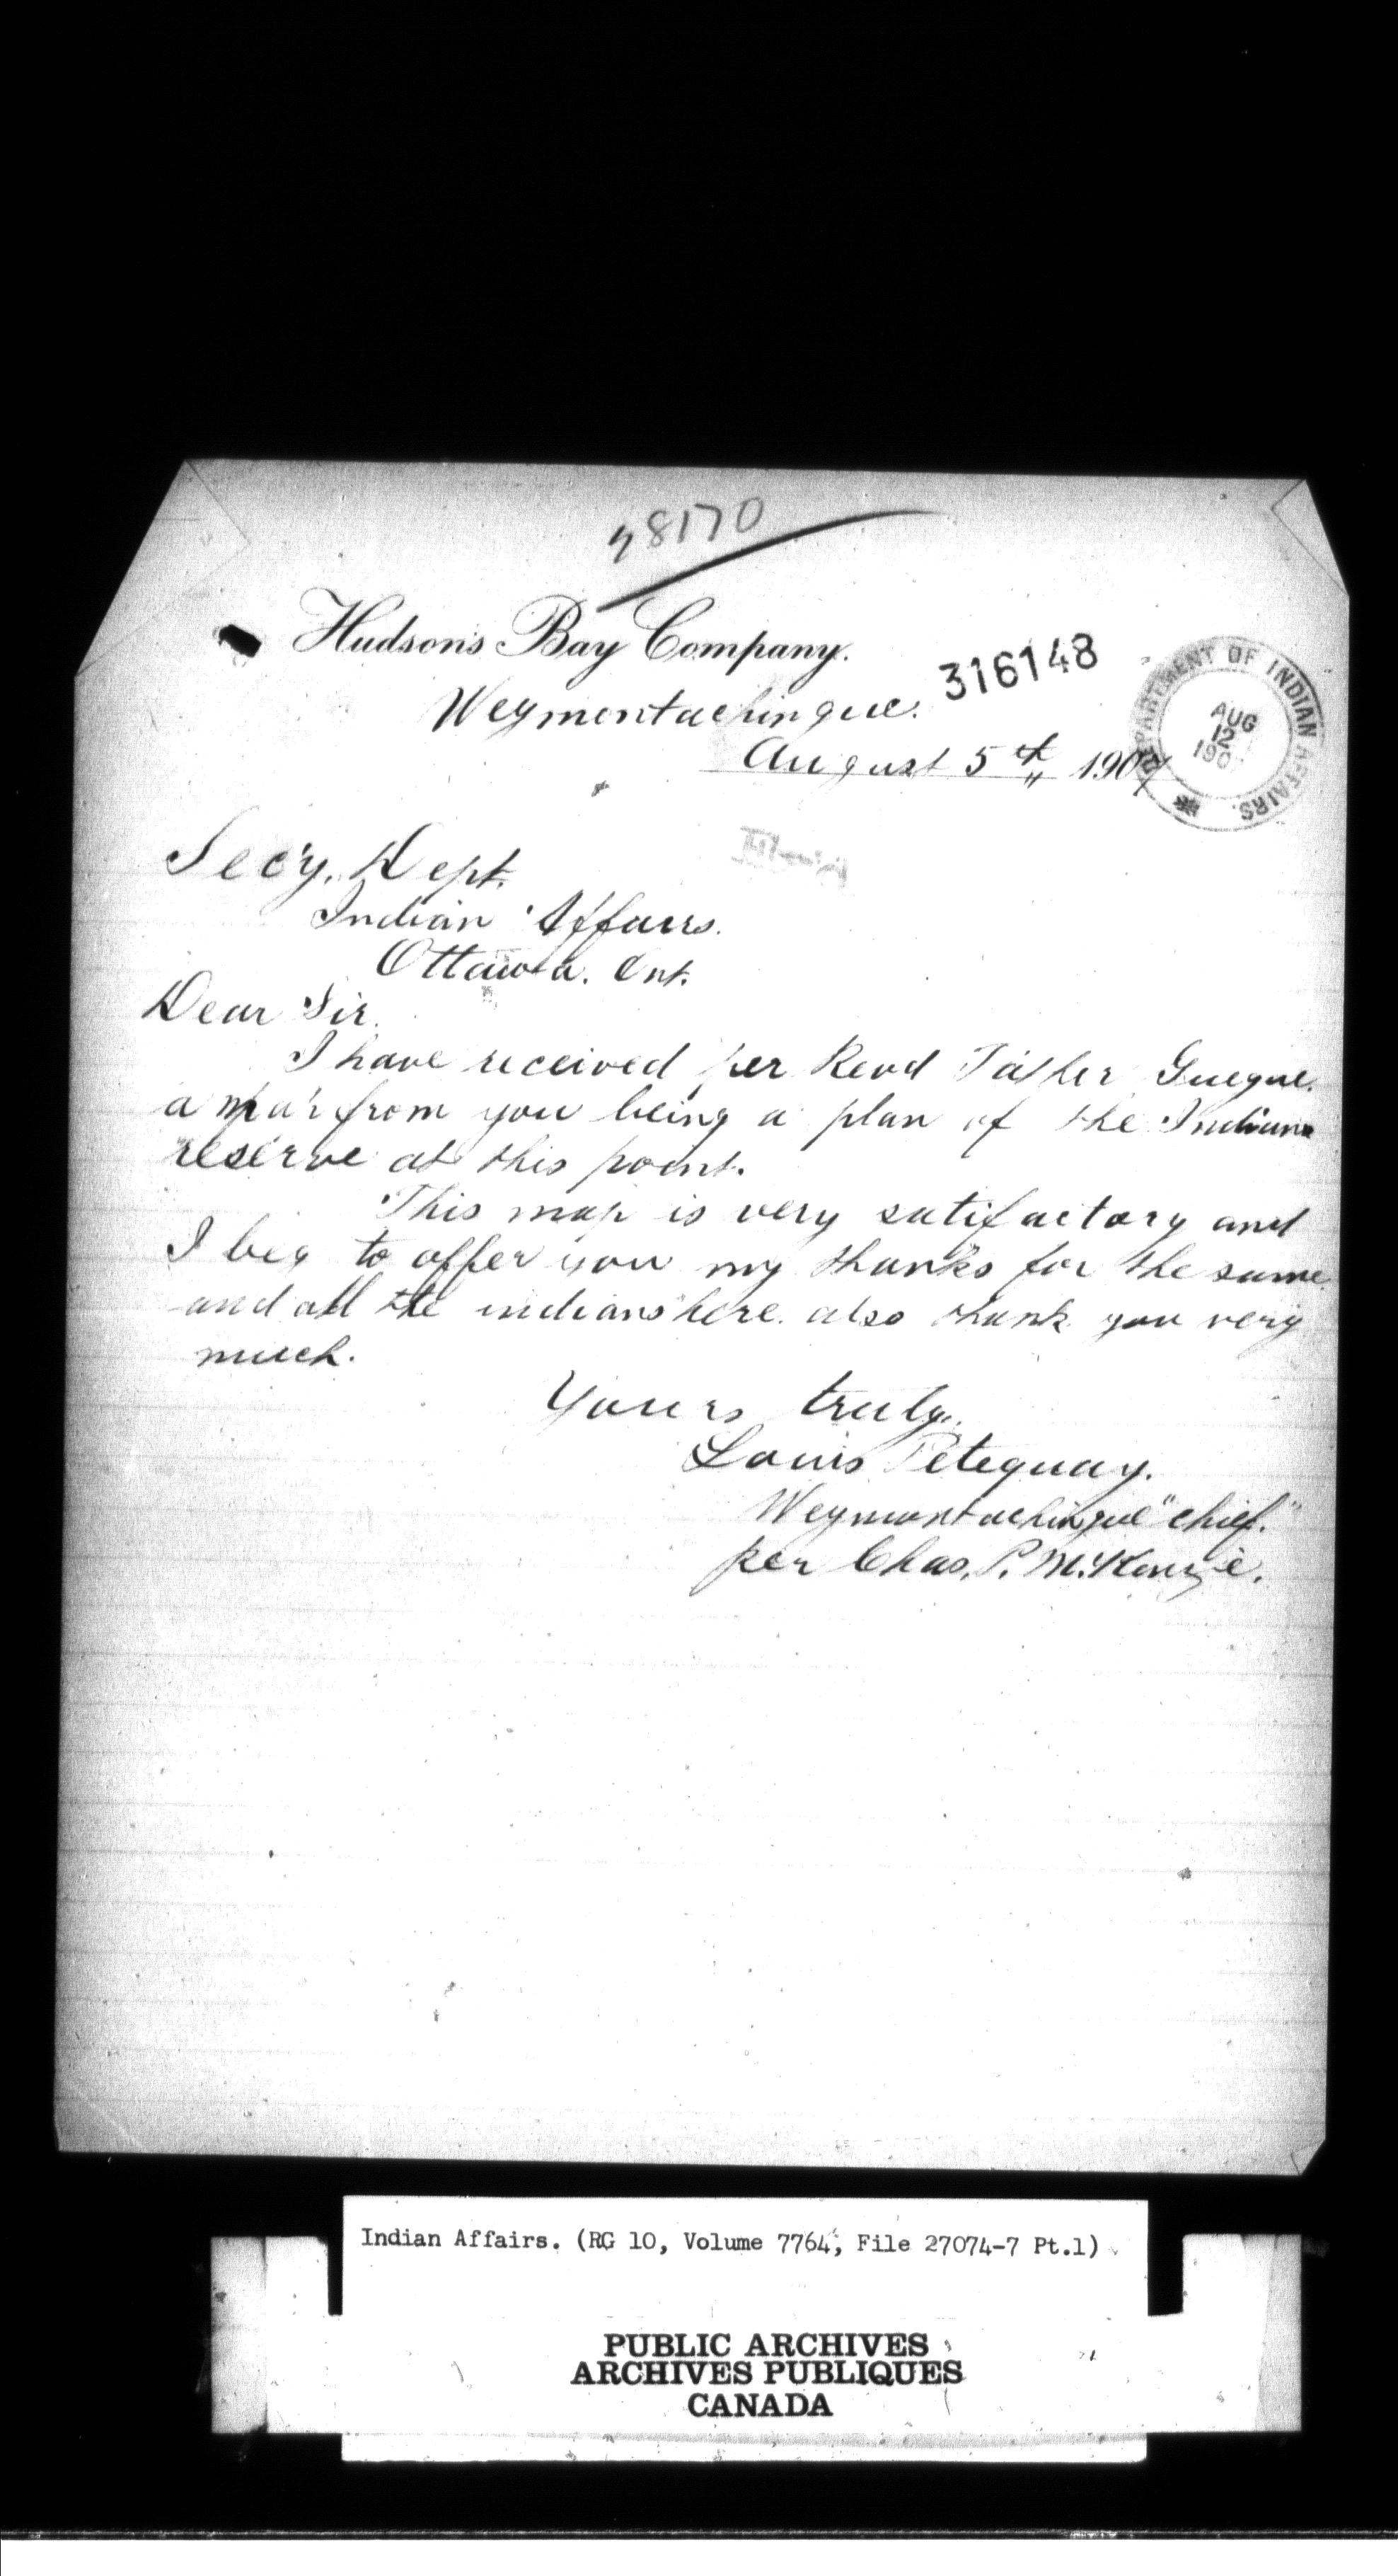 48170
Hudson's Bay Company.
316148
Weymontachingue.
DEPARTMENT OF INDIAN AFFAIRS.
AUG
12
190
August 5th 1907
Secy. Dept.
Indian Affairs.
Ottawa. Ont.
Dear Sir.
I have received per Revd Father Guegue.
a map from you being a plan of the Indian
reserve at this point.
This map is very satifactory and
I beg to offer you my thanks for the same
and all the indians here. also thank you very
much.
Yours truly.
Louis Petequay.
Weymontachingue "chief."
per Chas. P. McKenzie.
Indian Affairs. (RG 10, Volume 7764, File 27074-7 Pt.1)
PUBLIC ARCHIVES
ARCHIVES PUBLIQUES
CANADA